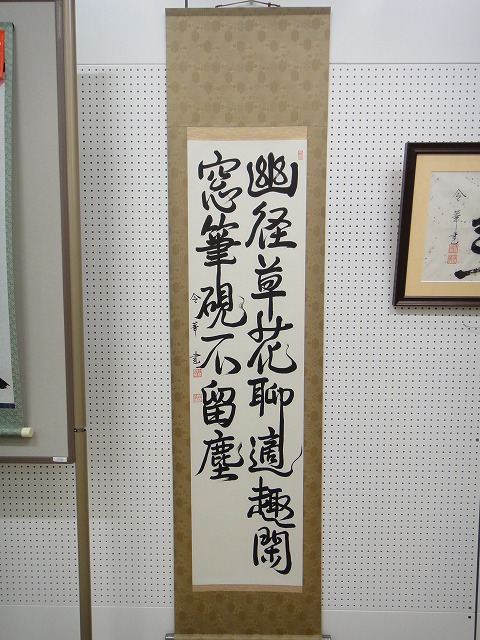 幽径草花聊適趣閑
窓筆硯不留塵
令華書
令華書